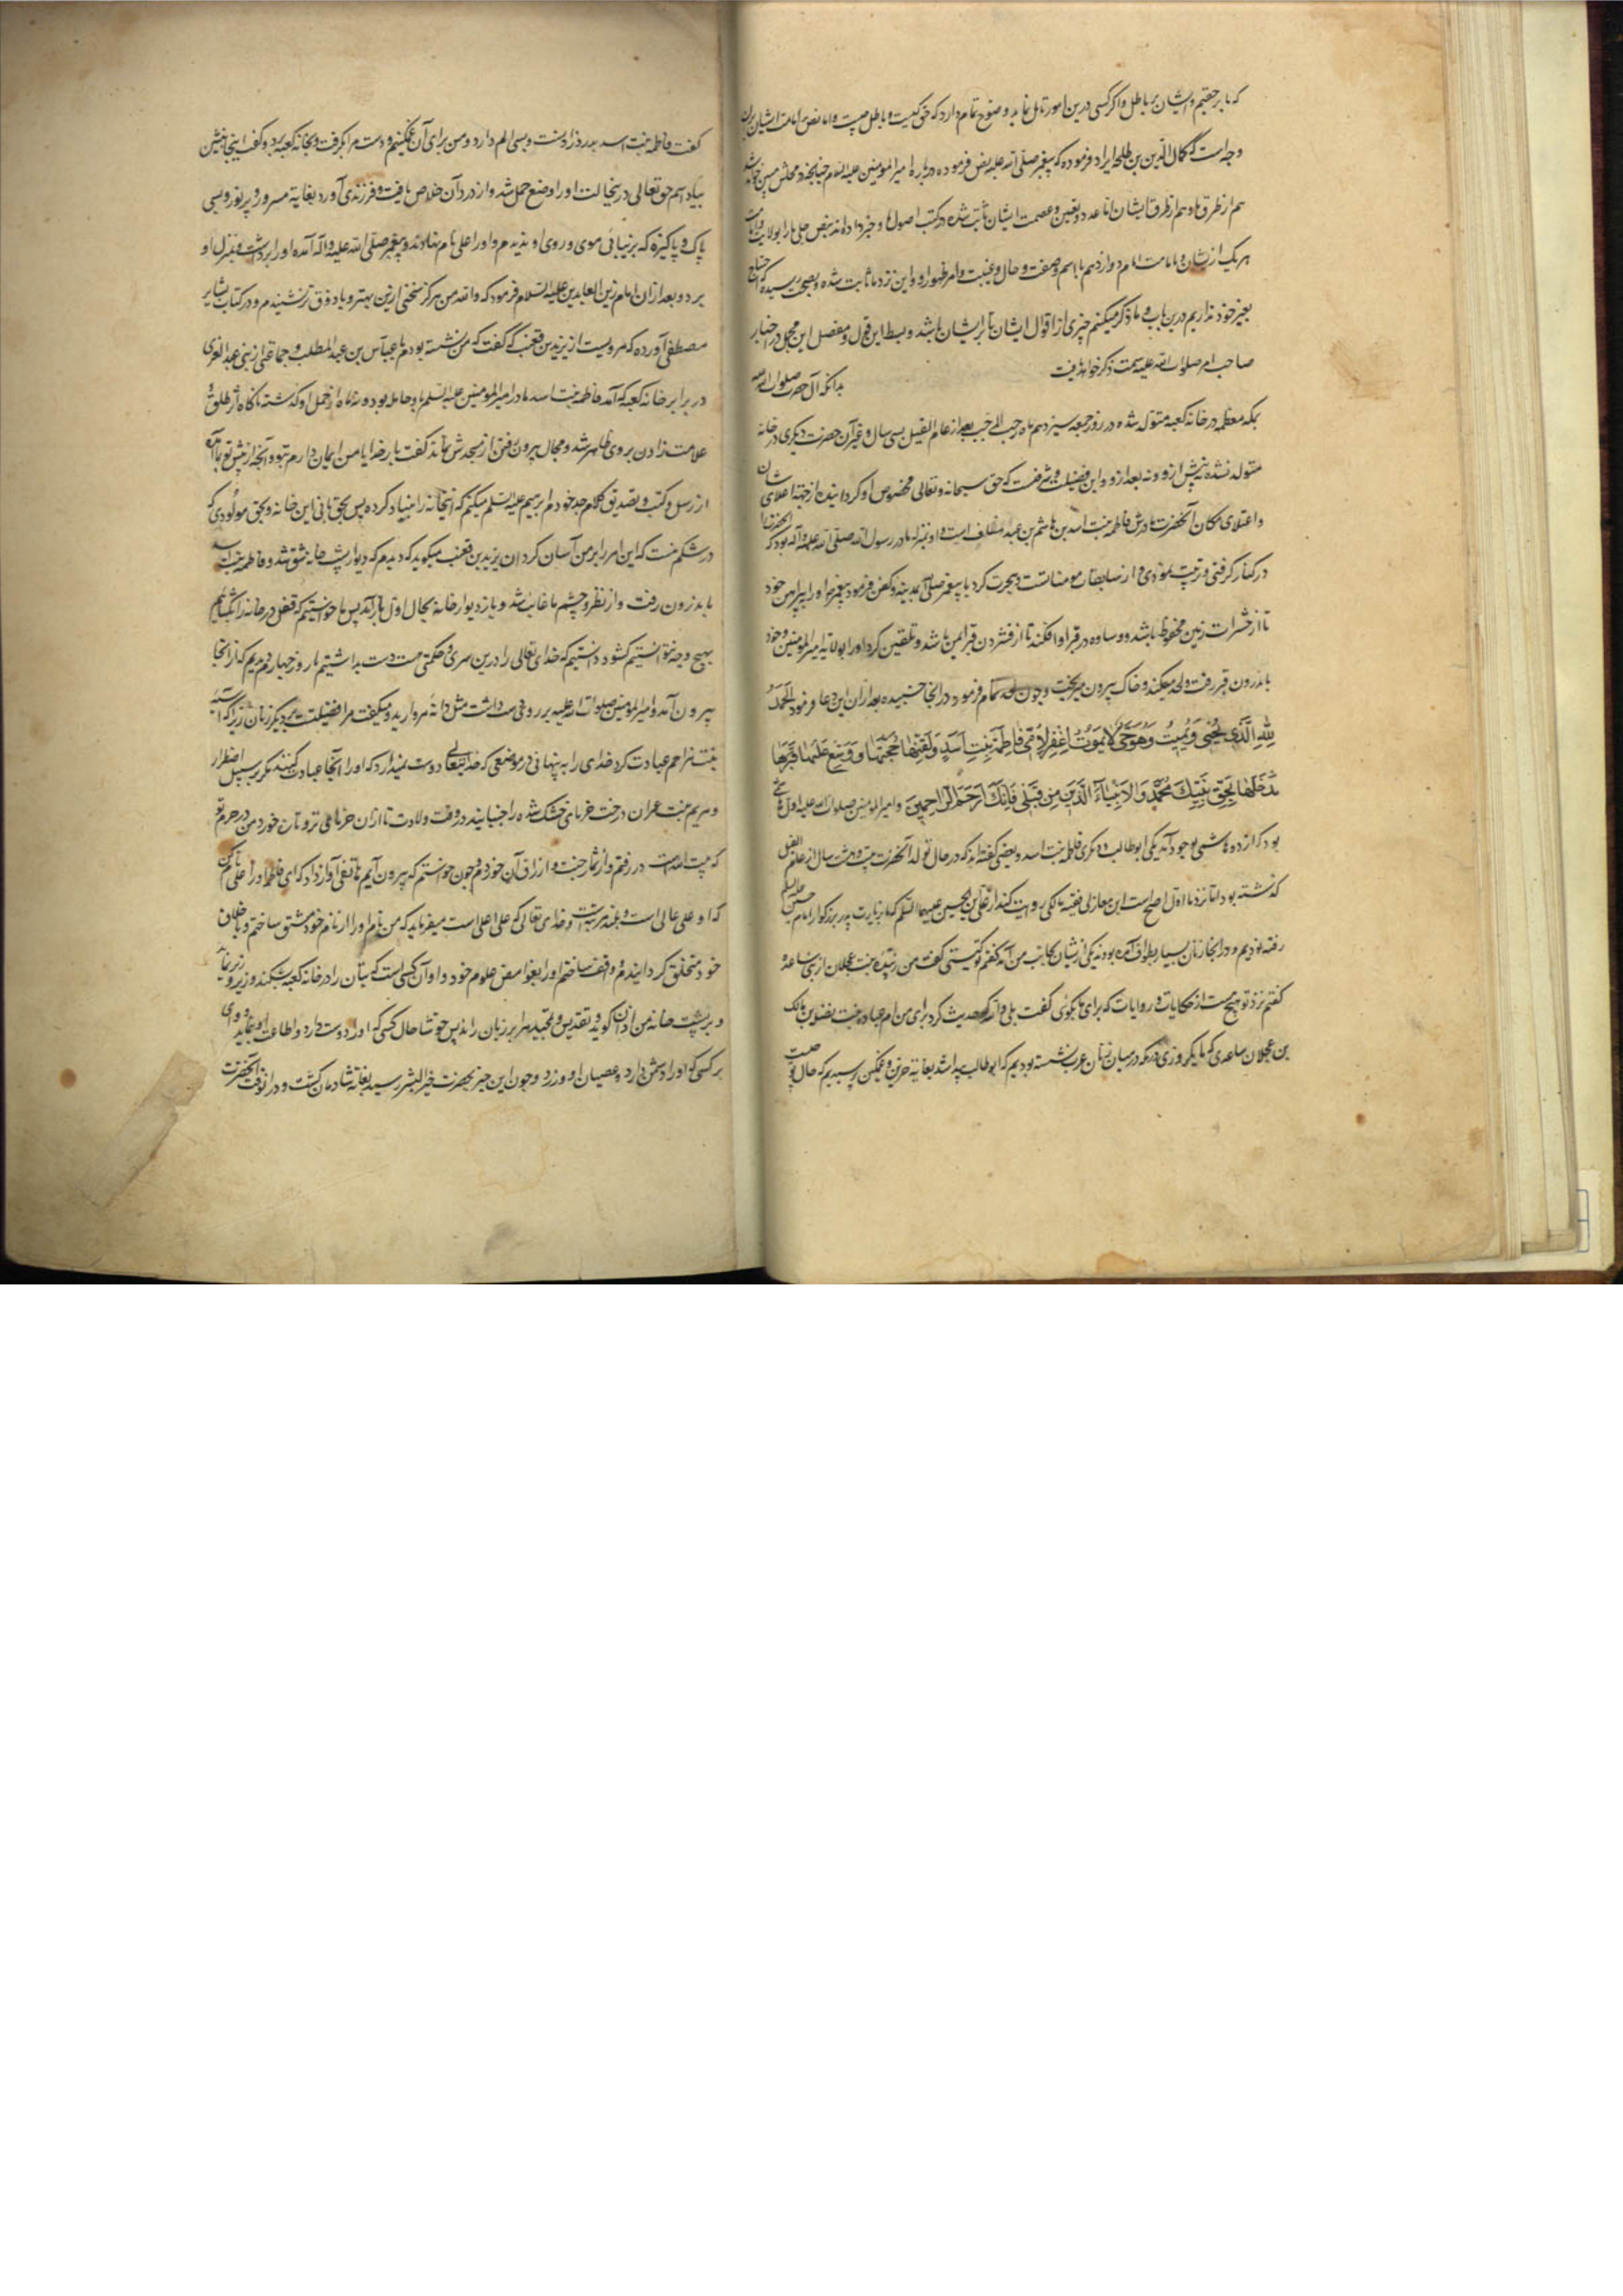 که ما بر حقیم و ایشان بر باطل و اگر کسی درین امور تامل نماید وضوح تمام دارد که حق کیست و باطل چیست و اما نص امامت ایشان بر آن
وجه است که کمال الدین بن طلحه ایراد فرموده که پیغمبر صلی الله علیه نص فرموده درباره امیر المومنین علیه السلام چنانچه در محلش مبین خواهد شد
هم از طرق ما و هم از طرق ایشان اما عدد و تعیین و عصمت ایشان ثابت شده در کتب اصول ما و خبر داده اند بنص جلی ما را بولایت و امامت
هر یک ازیشان و امامت امام دوازدهم باسم و صفت و حال و غیبت و امر ظهور او و این نزد ما ثابت شده و بصحت رسیده که احتیاج
بغیر خود نداریم درین باب و ما ذکر میکنیم چیزی از اقوال ایشان تا بر ایشان باشد و بسط این قول و مفصل این مجمل در اخبار
صاحب امر صلوات الله علیه سمت ذکر خواهد یافت بدانکه آن حضرت صلوات الله علیه
بمکه معظمه در خانه کعبه متولد شده در روز جمعه سیزدهم ماه رجب المرجب بعد از عام الفیل بسی سال و غیر آن حضرت دیگری در خانه
متولد نشده نه پیش ازو و نه بعد ازو و این فضیلت و شرفیست که حق سبحانه و تعالی مخصوص او گردانیده از جهة اعلای شان
و اعتلای مکان آنحضرت مادرش فاطمه بنت اسد بن هاشم بن عبد مناف است و او بمنزله مادر رسول الله صلی الله علیه و آله بود که آنحضرت را
در کنار گرفتی و تربیت نمودی و از سابقات مومنات است و هجرت کرد با پیغمبر صلی الله بمدینه و کفن فرمود پیغمبر او را به پیراهن خود
تا از حشرات زمین محفوظ باشد و وساده در قبر او افکند تا از فشردن قبر ایمن باشد و تلقین کرد او را بولایة امیر المومنین و خود
باندرون قبر رفت و لحد میکند و خاک بیرون میریخت و چون لحد تمام فرمود در آنجا خسبیده بعد از آن این دعا فرمود الحمد
لله الذی یحیی و یمیت و هو حی لا یموت اغفر لامی فاطمة بنت اسد و لقنها حجتها و وسع علیها قبرها
مدخلها بحق نبیک محمد و الانبیاء الذین من قبلی فانک ارحم الراحمین و امیر المومنین صلوات الله علیه اول هاشمی
بود که از دو هاشمی بوجود آمد یکی ابو طالب و دیگری فاطمه بنت اسد و بعضی گفته اند که در حال تولد آنحضرت بیست و هشت سال از عام الفیل
گذشته بود اما نزد ما اول اصح است ابن مغازلی فقیه مالکی روایت کند از علی بن الحسین علیهما السلم که ما بزیارت پدر بزرگوار امام حسین علیه السلم
رفته بودیم و در آنجا زنان بسیار بطواف آمده بودند یکی ازیشان بجانب من آمد گفتم تو کیستی گفت من زیده بنت عجلان از بنی ساعده
گفتم نزد تو هیچ هست از حکایات و روایات که برای ما بگوئی گفت بلی والله که حدیث کرد برای من ام عماره بنت نضله بن مالک
بن عجلان ساعدی که ما یک روزی در مکه در میان زنان عرب نشسته بودیم که ابو طالب پیدا شد بغایة حزین و غمگین پرسیدیم که حال تو چیست
گفت فاطمه بنت اسد بدرد زادنست و بسی الم دارد و من برای آن غمگینم و دست مرا بگرفت و بخانه کعبه برد و گفت اینجا بنشین
بیاد اسم حق تعالی درینحالت او را وضع حمل شد و از درد آن خلاص یافت و فرزندی آورد بغایة مسرور و پر نور و بسی
پاک و پاکیزه که بزیبائی موی و روی او ندیدم و او را علی نام نهادند و پیغمبر صلی الله علیه و آله آمده او را برداشت و بمنزل او
برد و بعد از آن امام زین العابدین علیه السلام فرمود که والله من هرگز سخنی ازین بهتر و با ذوق تر نشنیدم و در کتاب بشایر
مصطفی آورده که مرویست از یزید بن قعنب که گفت که من نشسته بودم با عباس بن عبد المطلب و جماعتی از بنی عبد العزی
در برابر خانه کعبه که آمد فاطمه بنت اسد مادر امیر المومنین علیه السلم و حامله بود و نه ماه از حمل او گذشته ناگاه اثر طلق و
علامت زادن بروی ظاهر شد و مجال بیرون رفتن از مسجدش نماند گفت بار خدایا من ایمان دارم بتو و آنچه از پیش تو بما آمده
از رسل و کتب و تصدیق کلام جد خودم ابرهیم علیه السلم میکنم که اینخانه را بنیاد کرده پس بحق بانی این خانه و بحق مولودی که
در شکم منست که این امر را بر من آسان گردان یزید بن قعنب میگوید که دیدم که دیوار پشت خانه شق شد و فاطمه بنت اسد
باندرون رفت و از نظر و چشم ما غایب شد و باز دیوار خانه بحال اول باز آمد پس ما خواستیم که قفل در خانه را بگشاییم
بهیچ وجه نتوانستیم گشود دانستیم که خدای تعالی را درین سری و حکمتی هست دست بداشتیم تا روز چهارم دیدیم که از آنجا
بیرون آمد و امیر المومنین صلوات الله علیه بر روی دست داشت مثل دانه مروارید و میگفت مرا فضیلتست بر دیگر زنان زیرا که آسیه
بنت مزاحم عبادت کرد خدای را به پنهانی در موضعی که خدایتعالی دوست نمیدارد که او را آنجا عبادت کنند مگر بر سبیل اضطرار
و مریم بنت عمران درخت خرمای خشک شده را جنبانید در وقت ولادت تا از آن خرمای تر و تازه خورد من در حرم تو
که بیت الله است در رفتم و از ثمار جنت و ارزاق آن خوردم و چون خواستم که بیرون آیم هاتفی آواز داد که ای فاطمه او را علی نام کن
که او علی عالی است و بلند مرتبت و خدای تعالی که علی اعلی است میفرماید که من نام او را از نام خود مشتق ساختم و باخلاق
خود متخلق گردانیدم و واقف ساختم او را بغوامض علوم خود و او آن کسی است که بتان را در خانه کعبه بشکند و زیر و زبر نماید
و بر پشت خانه من اذان گوید و تقدیس و تمجید مرا بر زبان راند پس خوشا حال کسی که او را دوست دارد و اطاعت او نماید و وای
بر کسی که او را دشمن دارد و عصیان او ورزد و چون این خبر بحضرت خیر البشر رسید بغایة شادمان گشت و در آنوقت آنحضرت